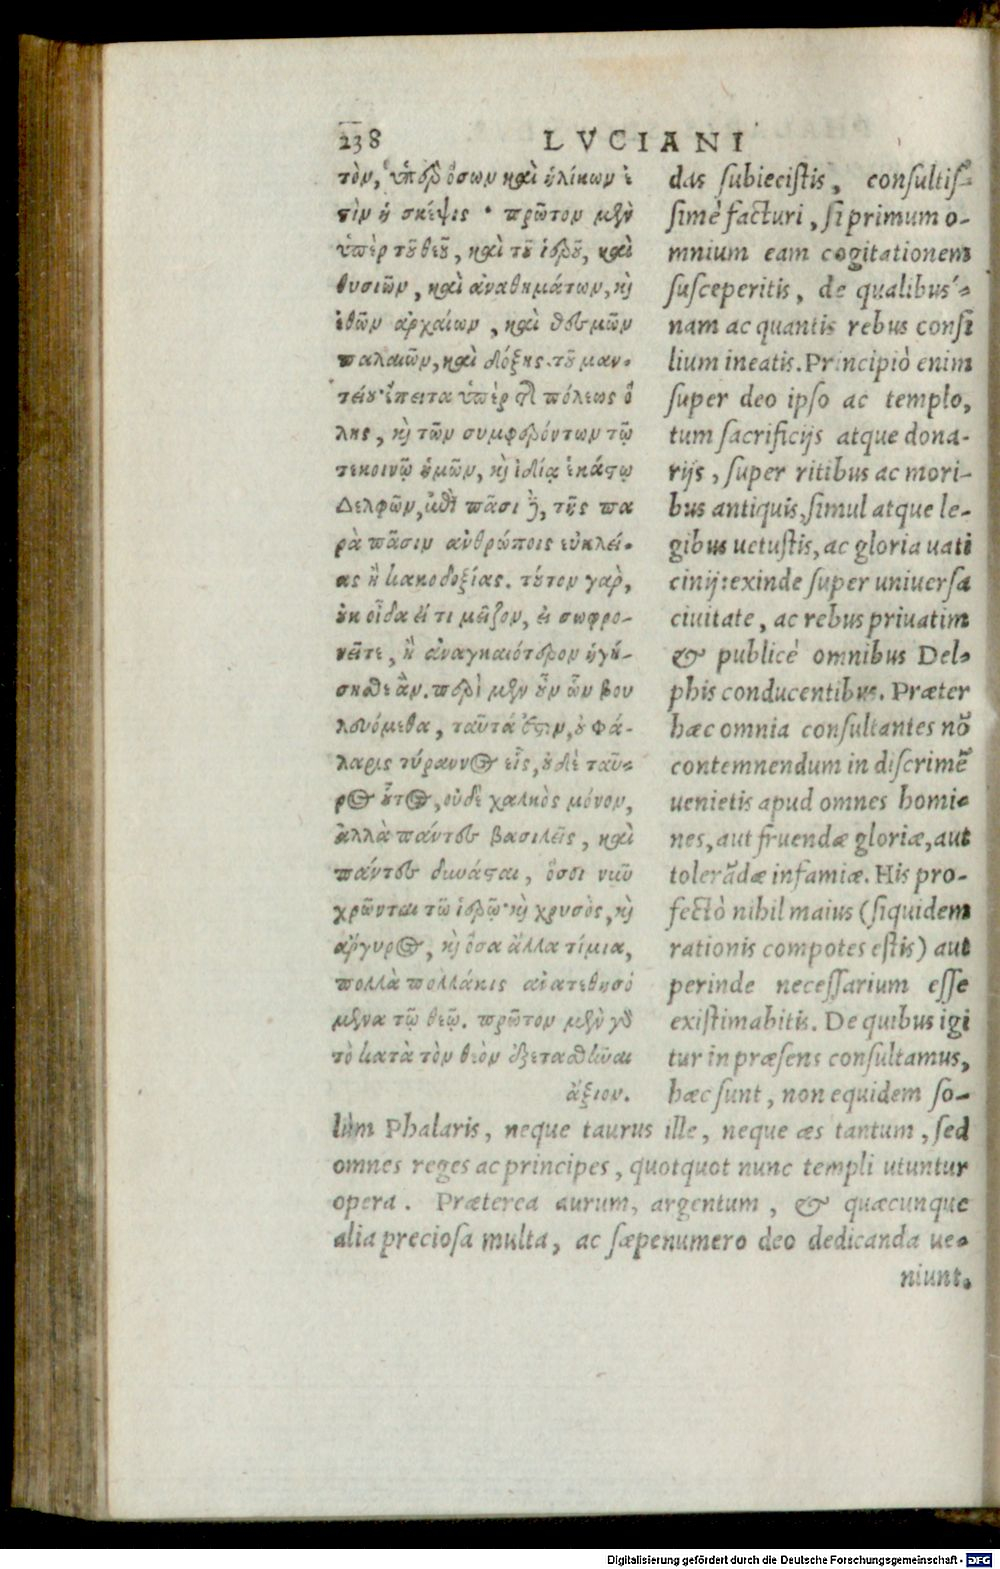 238 LVCIANI
τὸν, ὑπὲρ ὅσων καὶ ἡλίκων ἐ
στὶν ἡ σκέψις · πρῶτον μὲν
ὑπὲρ τοῦ θεοῦ, καὶ τοῦ ἱεροῦ, καὶ
θυσιῶν, καὶ ἀναθημάτων, καὶ
ἐθῶν ἀρχαίων, καὶ θεσμῶν
παλαιῶν, καὶ δόξης τοῦ μαν-
τείου· ἔπειτα ὑπὲρ τῆς πόλεως ὅ
λης, καὶ τῶν συμφερόντων τῷ
τε κοινῷ ἡμῶν, καὶ ἰδίᾳ ἑκάστῳ
Δελφῶν, ἐπὶ πᾶσι δὲ, τῆς πα
ρὰ πᾶσιν ἀνθρώποις εὐκλεί-
ας ἢ κακοδοξίας. τούτου γὰρ,
οὐκ οἶδα εἴ τι μεῖζον, εἰ σωφρο-
νεῖτε, ἢ ἀναγκαιότερον ἡγή-
σεσθε ἄν. περὶ μὲν οὖν ὧν βου
λευόμεθα, ταῦτά ἐστιν, οὐ Φά-
λαρις τύραννος εἷς, οὐδὲ ταῦ-
ρος οὗτος, οὐδὲ χαλκὸς μόνον,
ἀλλὰ πάντες βασιλεῖς, καὶ
πάντες δυνάσται, ὅσοι νῦν
χρῶνται τῷ ἱερῷ· καὶ χρυσὸς, καὶ
ἄργυρος, καὶ ὅσα ἄλλα τίμια,
πολλὰ πολλάκις ἀνατεθησό
μενα τῷ θεῷ. πρῶτον μὲν γὰρ
τὸ κατὰ τὸν θεὸν ἐξετασθῆναι
ἄξιον.
das subiecistis, consultis-
simè facturi, si primum o-
mnium eam cogitationem
susceperitis, de qualibus´-
nam ac quantis rebus consi
lium ineatis. Principiò enim
super deo ipso ac templo,
tum sacrificijs atque dona-
rijs, super ritibus ac mori-
bus antiquis, simul atque le-
gibus uetustis, ac gloria uati
cinij: exinde super uniuersa
ciuitate, ac rebus priuatim
& publicè omnibus Del-
phis conducentibus. Præter
hæc omnia consultantes nō
contemnendum in discrimē
uenietis apud omnes homi-
nes, aut fruendæ gloriæ, aut
tolerādæ infamiæ. His pro-
fectò nihil maius (siquidem
rationis compotes estis) aut
perinde necessarium esse
existimabitis. De quibus igi
tur in præsens consultamus,
hæc sunt, non equidem so-
lùm Phalaris, neque taurus ille, neque æs tantum, sed
omnes reges ac principes, quotquot nunc templi utuntur
opera. Præterea aurum, argentum, & quæcunque
alia preciosa multa, ac sæpenumero deo dedicanda ue-
niunt.
Digitalisierung gefördert durch die Deutsche Forschungsgemeinschaft - DFG